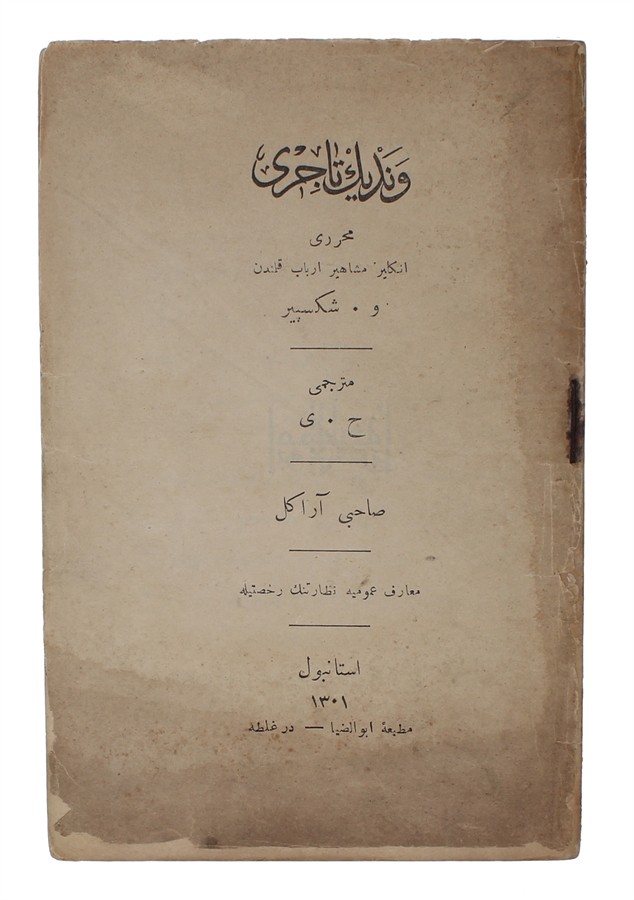 وَنَدِيك تاجِری
محرری
انكليز مشاهير ارباب قلمندن
و . شكسپير
مترجمی
ح . ی
صاحبی آراكل
معارف عموميه نظارتنك رخصتيله
استانبول
١٣٠١
مطبعهٔ ابوالضيا — در غلطه